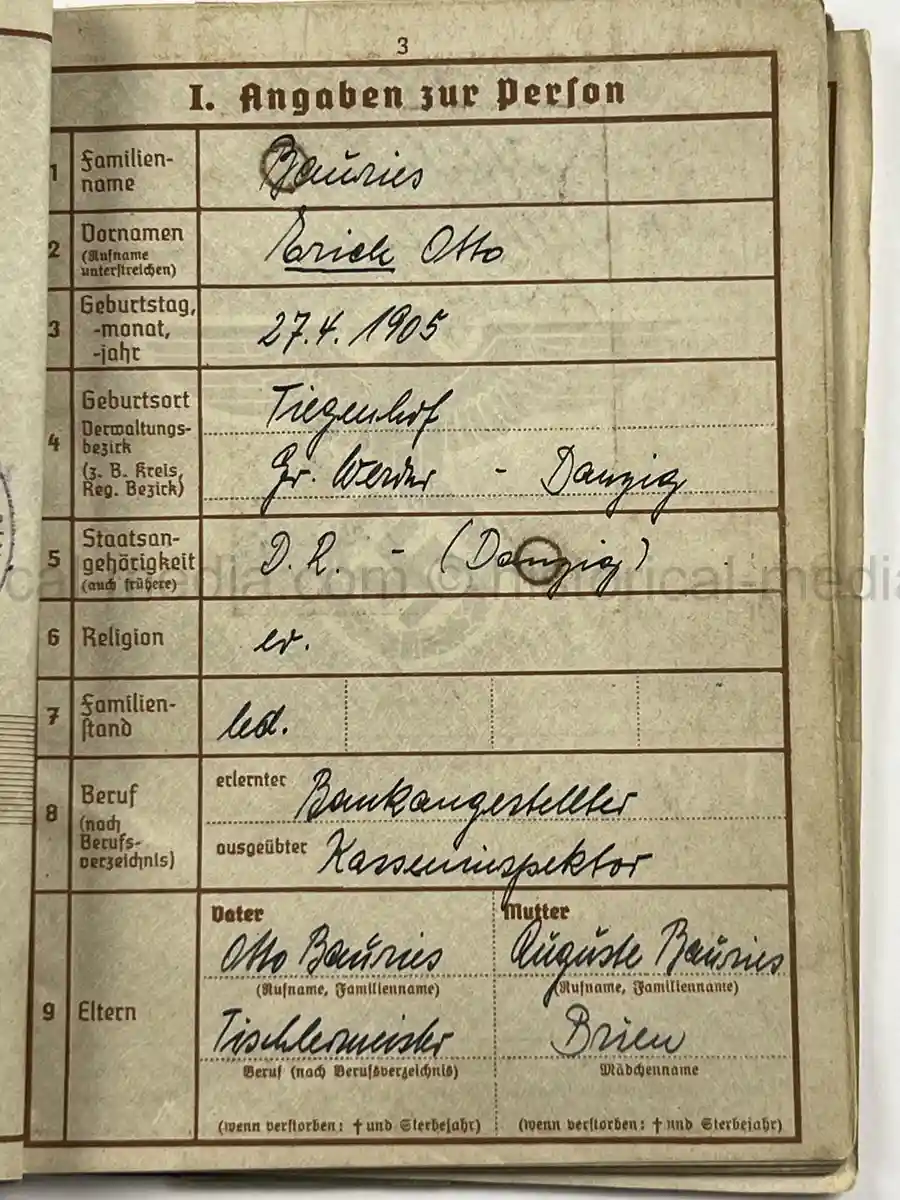 3
I. Angaben zur Person
1 Familien-
name
Bauries
2 Vornamen
(Rufname
unterstreichen)
Erich Otto
3 Geburtstag,
-monat,
-jahr
27.4.1905
4 Geburtsort
Verwaltungs-
bezirk
(z. B. Kreis,
Reg. Bezirk)
Tiegenhof
Gr. Werder - Danzig
5 Staatsan-
gehörigkeit
(auch frühere)
D.R. - (Danzig)
6 Religion
ev.
7 Familien-
stand
led.
8 Beruf
(nach
Berufs-
verzeichnis)
erlernter Bankangestellter
ausgeübter Kasseninspektor
9 Eltern
Vater
Otto Bauries
(Rufname, Familienname)
Tischlermeister
Beruf (nach Berufsverzeichnis)
(wenn verstorben: † und Sterbejahr)
Mutter
Auguste Bauries
(Rufname, Familienname)
Brien
Mädchenname
(wenn verstorben: † und Sterbejahr)
cal-media.com © historical-media